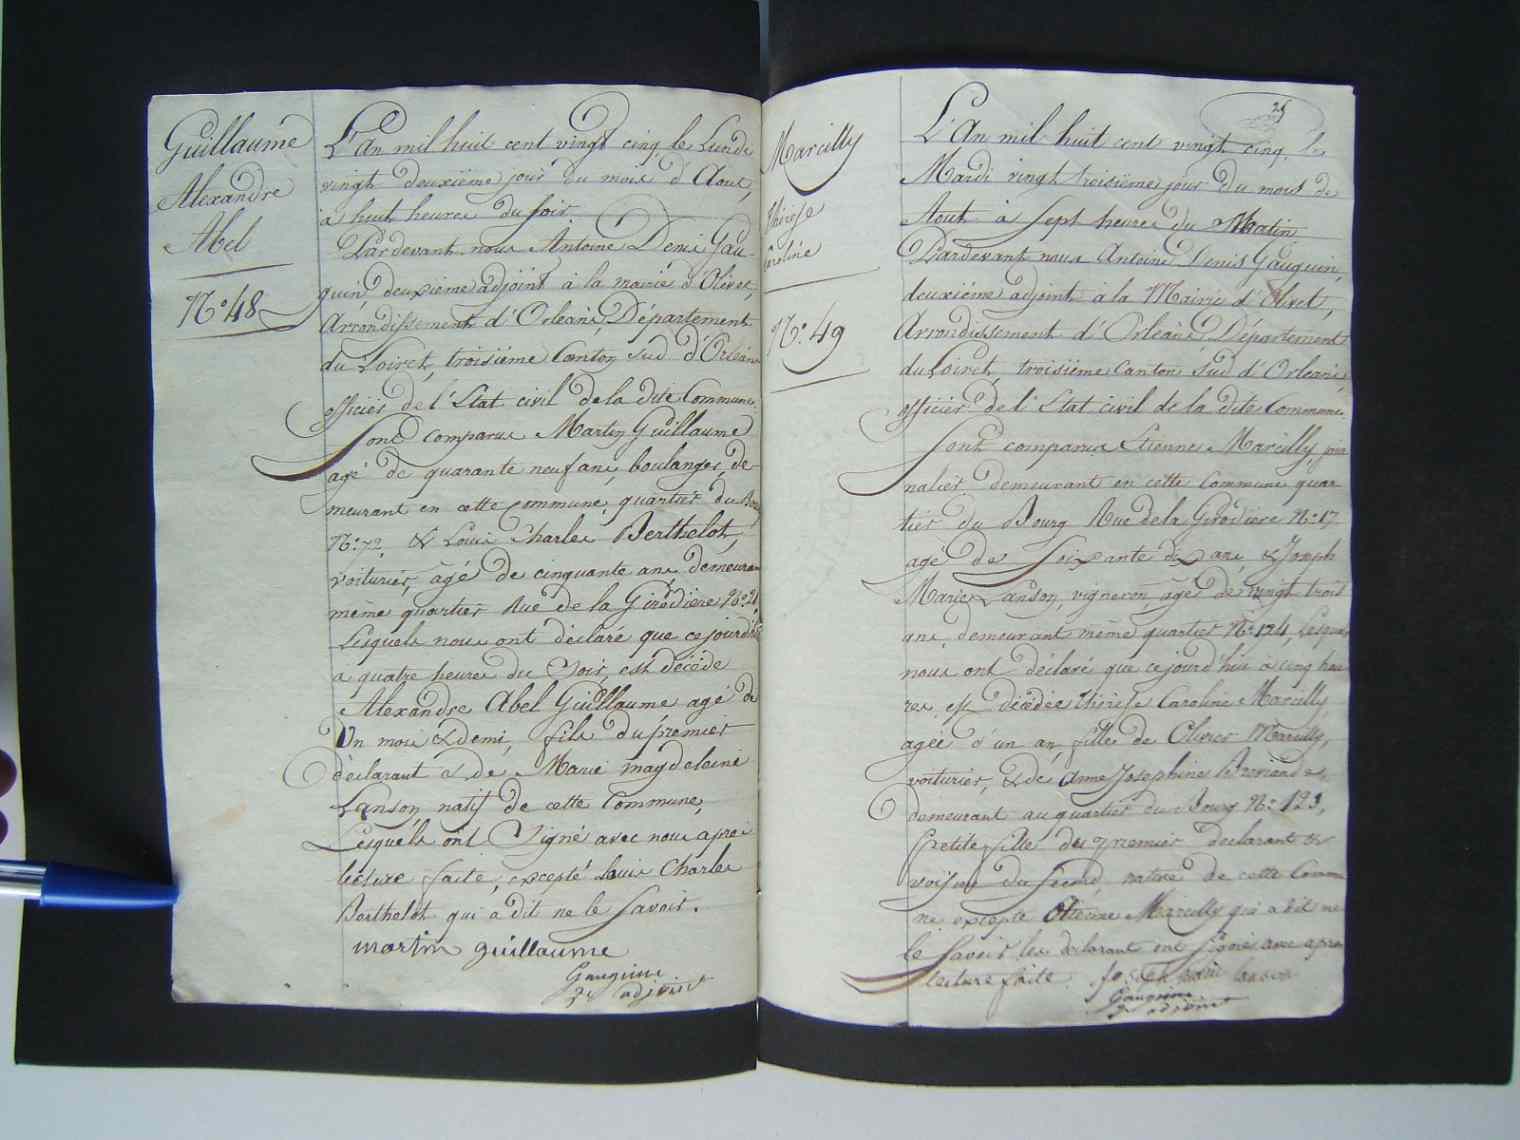 Guillaume
Alexandre
Abel
N.o 48
L'An mil huit cent vingt cinq, le Lundi
vingt deuxième jour du mois d'Aout,
à huit heures du soir.
Pardevant nous Antoine Denis Gau-
guin, deuxième adjoint à la mairie d'Olivet,
Arrondissement d'Orléans, Département
du Loiret, troisième Canton sud d'Orléans
officier de l'Etat civil de la dite Commune.
Sont comparus Martin Guillaume
agé de quarante neuf ans, boulanger, de-
meurant en cette commune, quartier du Bourg
N.o 72, & Louis Charles Berthelot,
voiturier, âgé de cinquante ans demeurant
même quartier Rue de la Girodière N.o 21
Lesquels nous ont déclaré que cejourd'hui
a quatre heures du Soir, est décédé
Alexandre Abel Guillaume agé de
Un mois & demi, fils du premier
déclarant & de Marie magdeleine
Lanson natif de cette Commune,
Lesquels ont Signé avec nous après
lecture faite, excepté Louis Charles
Berthelot qui a dit ne le Savoir.
martin guillaume
Gauguin
2e adjoint
25
Marcilly
Thérèse
Caroline
N.o 49
L'An mil huit cent vingt cinq, le
Mardi vingt troisième jour du mois de
Aout à Sept heures du Matin
Pardevant nous Antoine Denis Gauguin,
deuxième adjoint à la Mairie d'Olivet,
Arrondissement d'Orléans Département
du Loiret, troisième Canton Sud d'Orléans,
officier de l'Etat civil de la dite Commune.
Sont comparus Etienne Marcilly, jour
nalier demeurant en cette Commune quar
tier du Bourg Rue de la Girodière N.o 17
agé de Soixante dix ans, & Joseph
Marie Lanson, vigneron, âgé de vingt trois
ans, demeurant même quartier N.o 124, Lesquels
nous ont déclaré que cejourd'hui à cinq heu
res est décédée Thérèse Caroline Marcilly
agée d'un an, fille de Olivier Marcilly,
voiturier, & de Anne Josephine
demeurant au quartier du Bourg N.o 123,
Petite fille du premier déclarant &
voisine du Second, native de cette Commu
ne excepté Etienne Marcilly qui a dit ne
le Savoir les déclarant ont Signé avec après
lecture faite. joseph marie lanson
Gauguin
2e adjoint